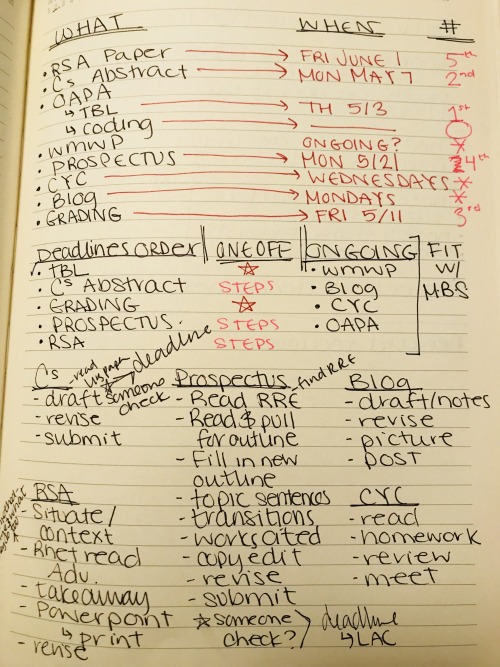 WHAT WHEN #
• RSA Paper → FRI JUNE 1 5th
• C's Abstract → MON MAY 7 2nd
• OAPA
↳ TBL → TH 5/3 1st
↳ coding → ———
• WMWP ONGOING? *
• PROSPECTUS → MON 5/21 4th
• CYC → WEDNESDAYS *
• Blog → MONDAYS *
• GRADING → FRI 5/11 3rd
Deadlines ORDER ONE OFF ONGOING FIT
✓ TBL ☆ • WMWP W/
• C's Abstract STEPS • Blog MBS
• GRADING ☆ • CYC
• PROSPECTUS STEPS • OAPA
• RSA STEPS
C's - read deadline Prospectus - find RRE Blog
- draft someone check - Read RRE - draft/notes
- revise - Read & pull - revise
- submit for outline - picture
- Fill in new - post
outline
RSA - topic sentences CYC
- Situate/ - transitions - read
context - works cited - homework
- Rhet read - copy edit - review
Adv. - revise - meet
- takeaway - submit
- Powerpoint ☆ someone deadline
↳ print check? ↳ LAC
- revise